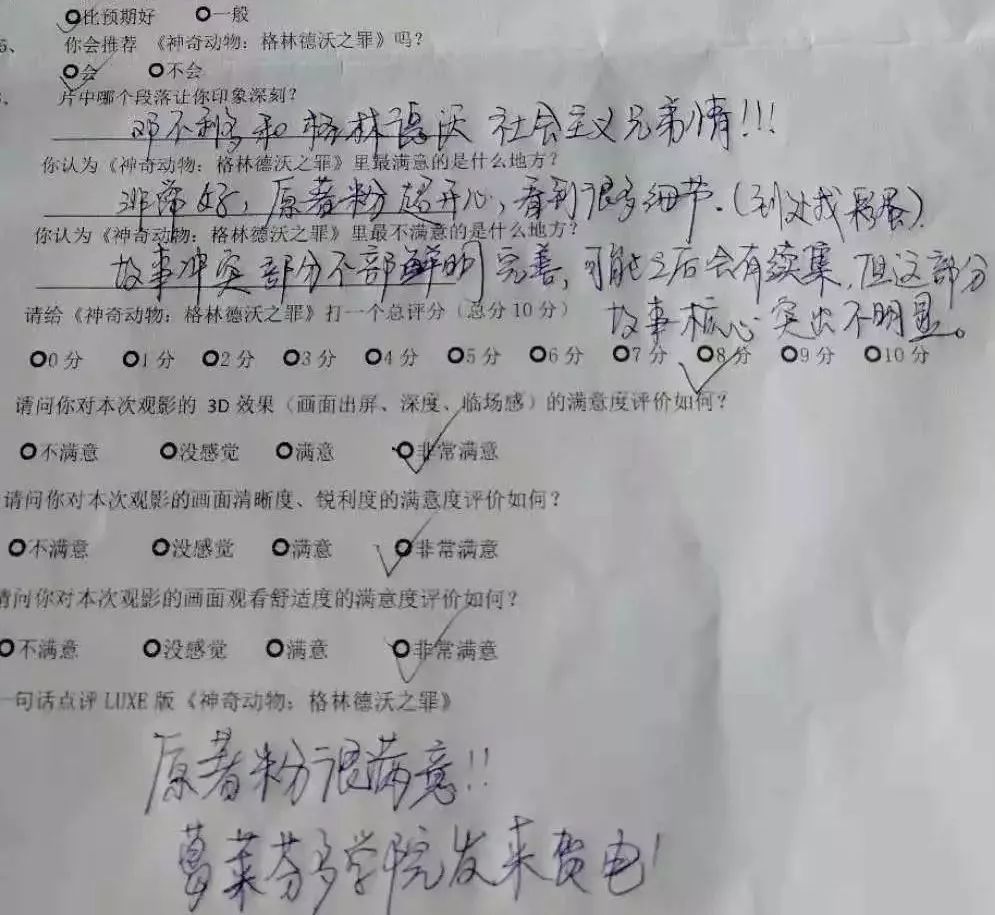 比预期好 一般
5、 你会推荐 《神奇动物：格林德沃之罪》吗？
会 不会
片中哪个段落让你印象深刻？
邓不利多和格林德沃 社会主义兄弟情!!!
你认为《神奇动物：格林德沃之罪》里最满意的是什么地方？
非常好，原著粉超开心，看到很多细节.(到处找彩蛋)
你认为《神奇动物：格林德沃之罪》里最不满意的是什么地方？
故事冲突部分不部鲜明完善，可能之后会有续集，但这部分
故事核心突出不明显。
请给《神奇动物：格林德沃之罪》打一个总评分（总分 10 分）
0 分 1 分 2 分 3 分 4 分 5 分 6 分 7 分 8 分 9 分 10 分
请问你对本次观影的 3D 效果（画面出屏、深度、临场感）的满意度评价如何？
不满意 没感觉 满意 非常满意
请问你对本次观影的画面清晰度、锐利度的满意度评价如何？
不满意 没感觉 满意 非常满意
请问你对本次观影的画面观看舒适度的满意度评价如何？
不满意 没感觉 满意 非常满意
一句话点评 LUXE 版《神奇动物：格林德沃之罪》
原著粉很满意!!
葛莱芬多学院发来贺电!